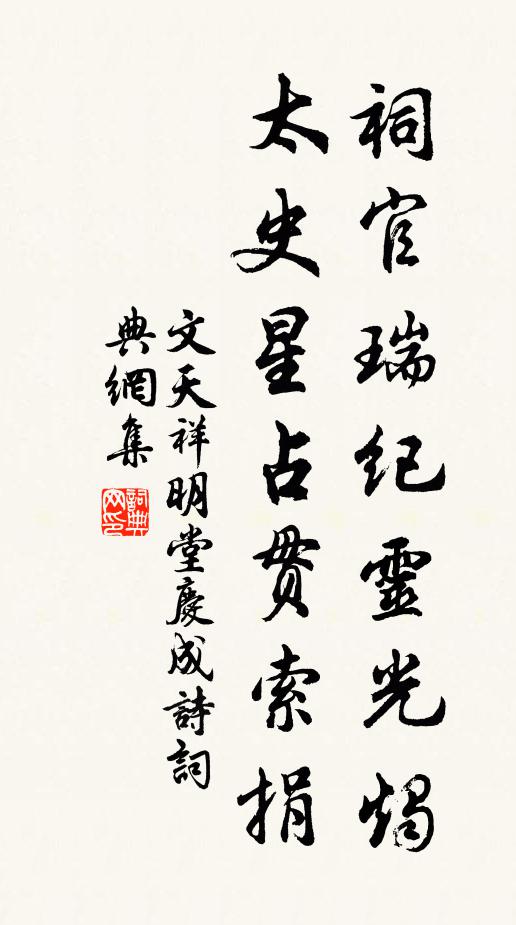 祠官瑞紀靈光燭
太史星占貫索捐
文天祥明堂慶成詩詞
典網集
詞典
网印